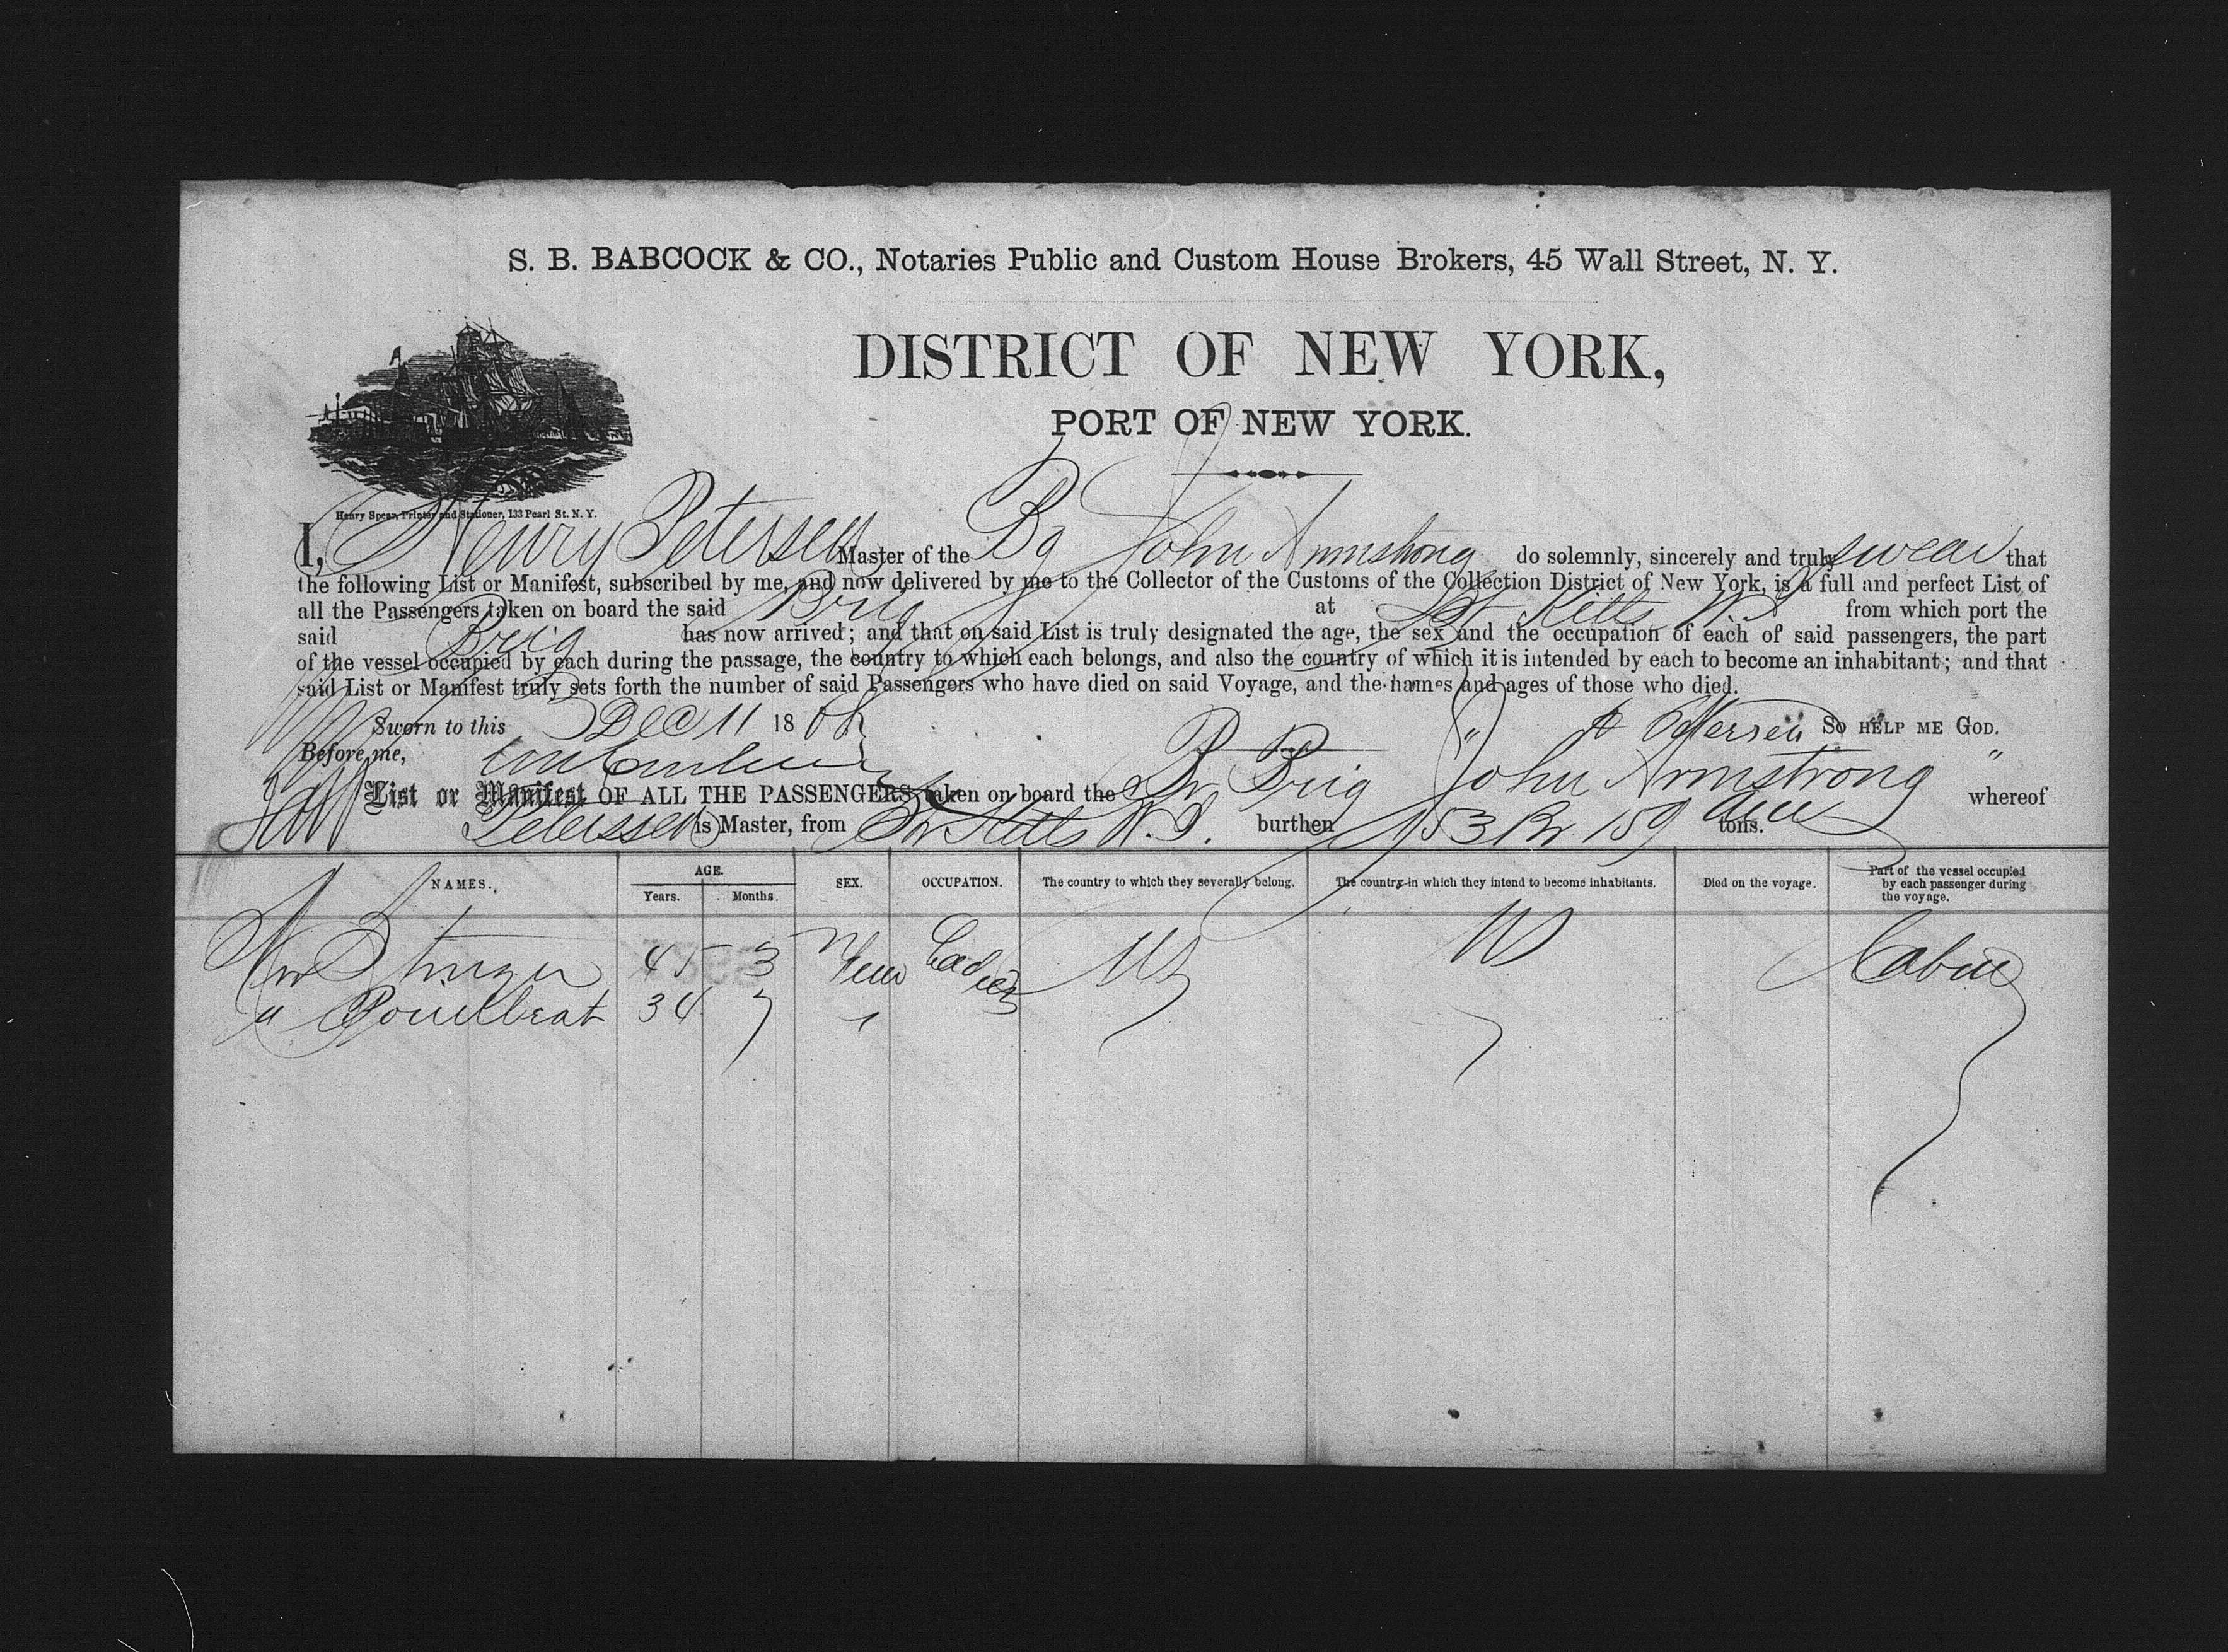 S. B. BABCOCK & CO., Notaries Public and Custom House Brokers, 45 Wall Street, N. Y.
DISTRICT OF NEW YORK,
PORT OF NEW YORK.
Henry Spear, Printer and Stationer, 133 Pearl St. N. Y.
I, Henry Petersen Master of the Bg John Armstrong do solemnly, sincerely and truly swear that
the following List or Manifest, subscribed by me, and now delivered by me to the Collector of the Customs of the Collection District of New York, is a full and perfect List of
all the Passengers taken on board the said Brig at St Kitts W.I from which port the
said Brig has now arrived; and that on said List is truly designated the age, the sex and the occupation of each of said passengers, the part
of the vessel occupied by each during the passage, the country to which each belongs, and also the country of which it is intended by each to become an inhabitant; and that
said List or Manifest truly sets forth the number of said Passengers who have died on said Voyage, and the names and ages of those who died.
Sworn to this Dec 11 186 H Petersen SO HELP ME GOD.
Before me,
List or Manifest OF ALL THE PASSENGERS taken on board the Br Brig "John Armstrong" whereof
Petersen is Master, from St Kitts W.I. burthen 153 Br 159 tons.
NAMES. AGE. SEX. OCCUPATION. The country to which they severally belong. The country in which they intend to become inhabitants. Died on the voyage. Part of the vessel occupied by each passenger during the voyage.
Years. Months.
45 3 Ladies US US Cabin
" 34 7 "